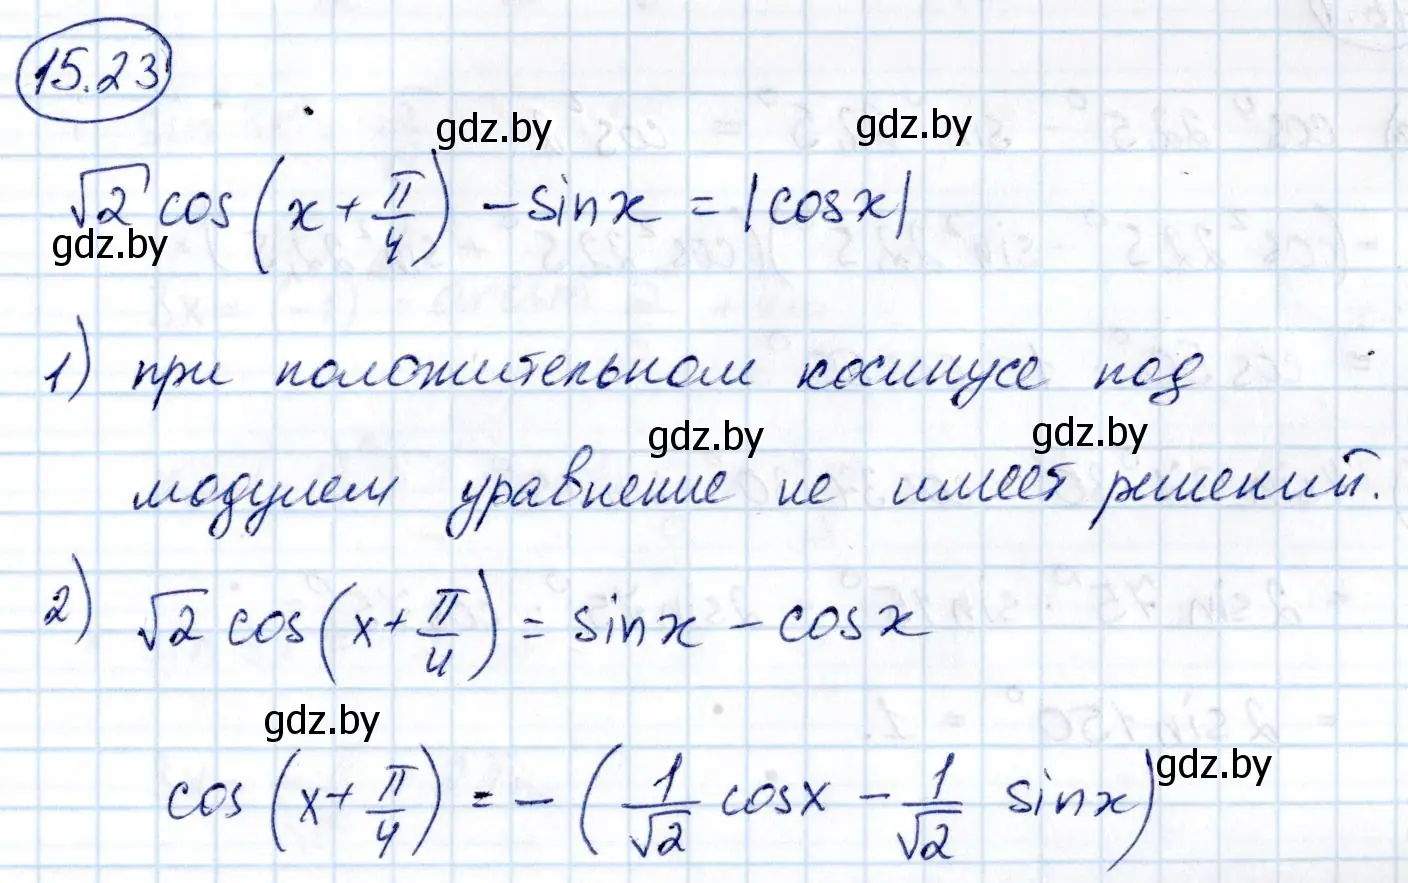 15.23
gdz.by gdz.by
√2 cos(x + π/4) - sinx = |cosx|
gdz.by
1) при положительном косинусе под
gdz.by gdz.by
модулем уравнение не имеет решений.
2) √2 cos(x + π/4) = sinx - cosx
gdz.by
gdz.by
cos(x + π/4) = -(1/√2 cosx - 1/√2 sinx)